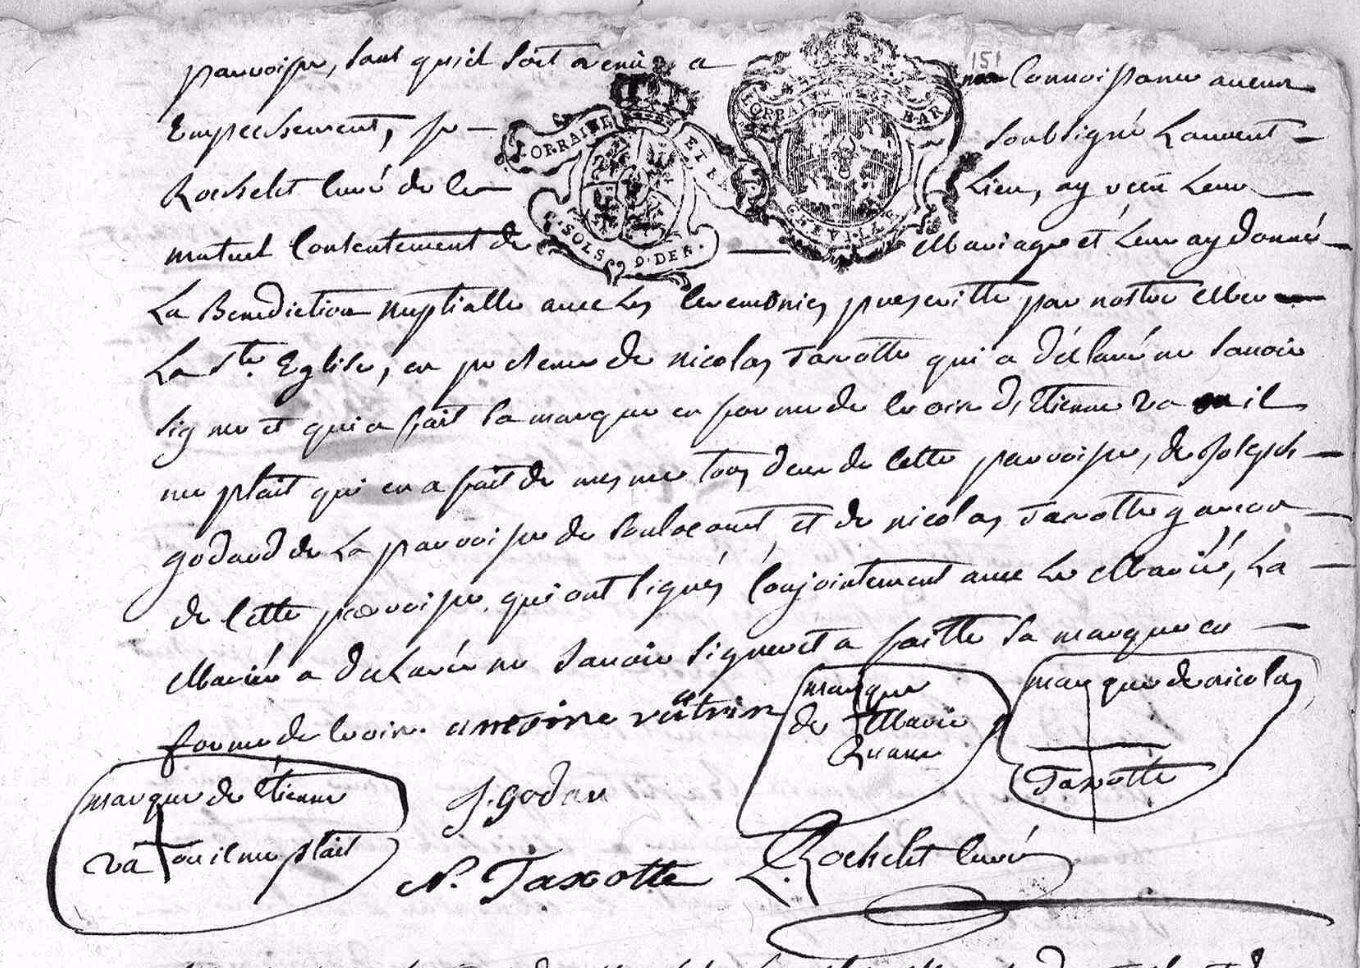 paroisse, sans quil soit venu a ma Connoissance aucun
Empeschement, je soubsigné Laurent
Rochelit Curé de ce Lieu, ay reçu Leur
mutuel Consentement de Mariage et Leur ay donné
La Benediction nuptialle avec Les Ceremonies prescritte par nostre Mere
La Ste Eglise, en presence de nicolas Taxotte qui a déclaré ne Sanoir
signer et qui a fait sa marque en forme de Croix d'Etienne Va ou il
me plait qui en a fait de mesme tous deux de Cette paroisse, de Joseph
godard de La paroisse de Soulocourt, et de nicolas Taxotte garcon
de Cette paroisse qui ont signés Conjointement avec Le Marié, La
Mariée a declarée ne Sanoir signer et a faitte sa marque en
forme de Croix. antoine vautrin
LORRAINE ET
SOLS 9. DER.
LORRAINE BAR
151
marque
de Marie
marque de nicolas
Taxotte
marque de Etienne
va ou il me plait
J. Godar
N. Taxotte
L. Rochelit Curé